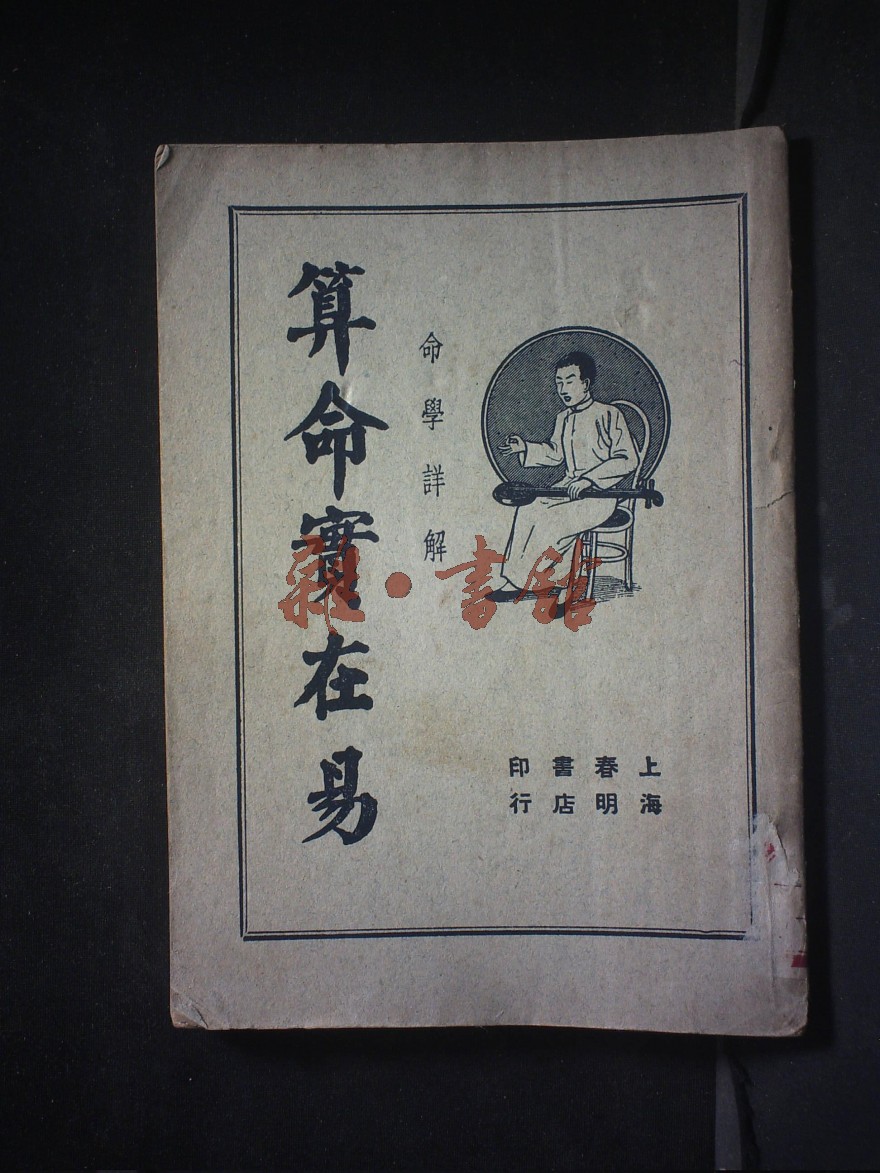 算命實在易
命學詳解
上海
春明
書店
印行
雜·書館